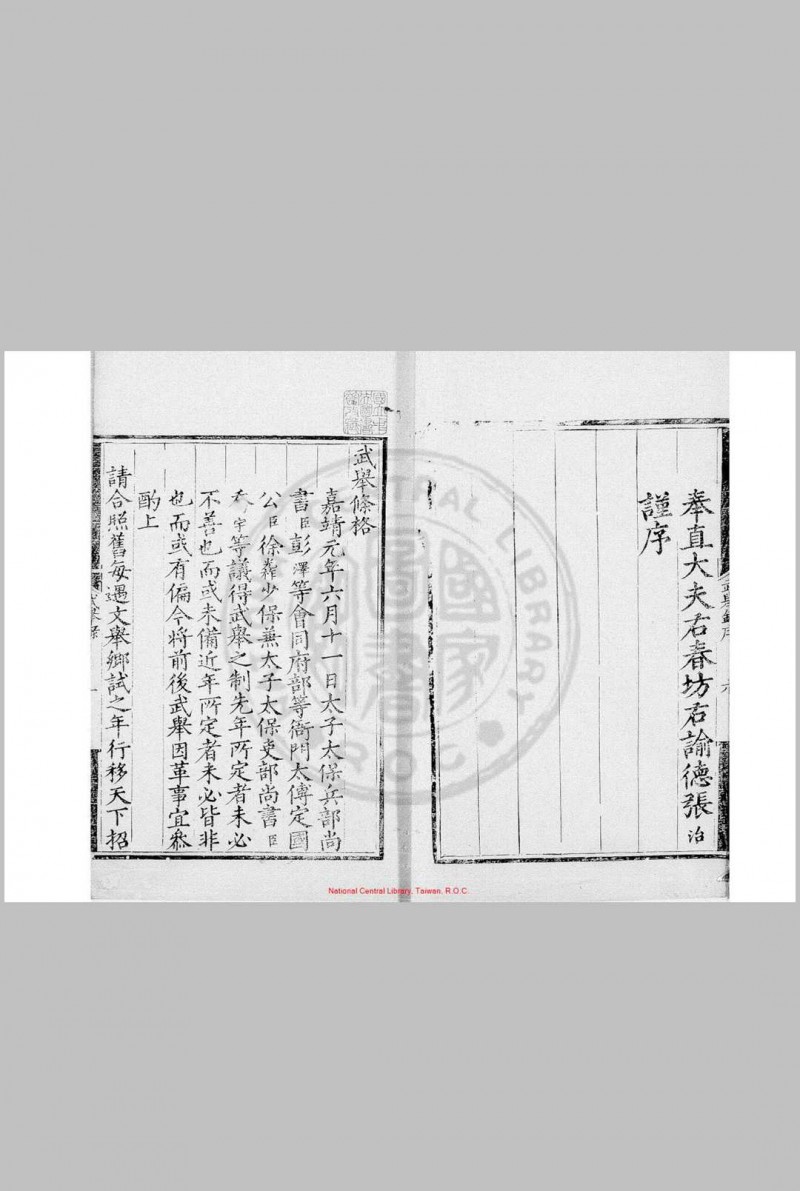 奉直大夫右春坊右諭德張治
謹序
武舉條格
嘉靖元年六月十一日太子太保兵部尚
書臣彭澤等會同府部等衙門太傅定國
公臣徐光祚少保兼太子太保吏部尚書臣
喬宇等議得武舉之制先年所定者未必
不善也而或未備近年所定者未必皆非
也而或有偏今將前後武舉因革事宜叅
酌上
請合照舊每遇文舉鄉試之年行移天下招
CENTRAL LIBRARY
R.O.C.
國家圖書館
National Central Library, Taiwan, R.O.C.